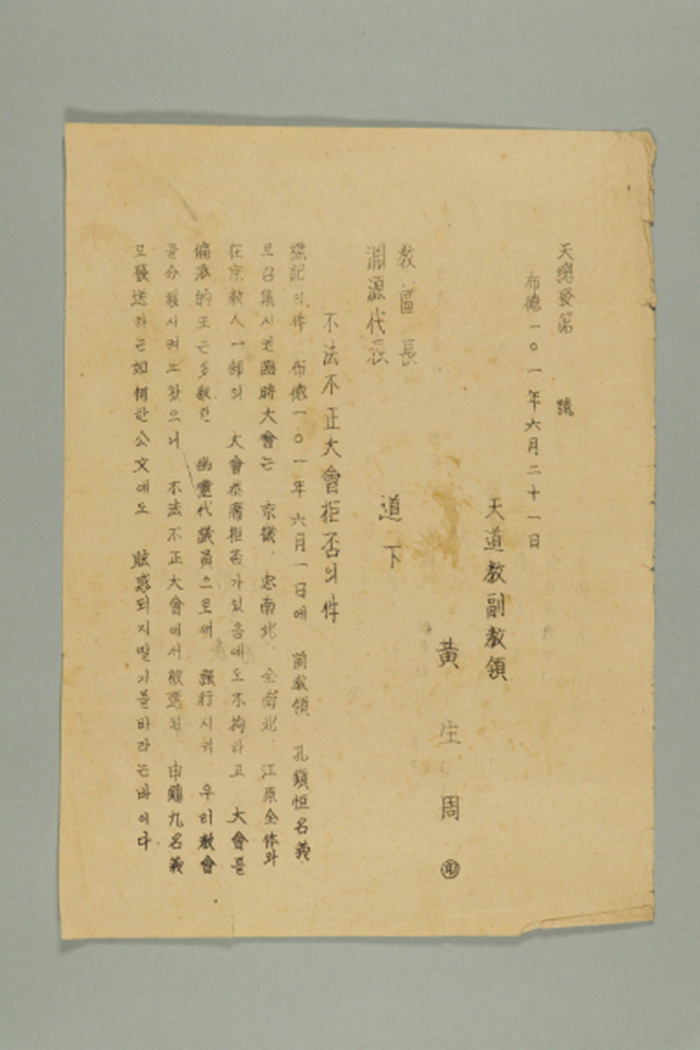 天總發第 號
布德一〇一年六月二十一日
天道教副教領
黃生周 ㊞
教區長
淵源代表 道下
不法不正大會拒否의件
標記의件 布德一〇一年六月一日에 前教領 孔鎭恒名義
로召集시킨臨時大會는 京畿、忠南北、全南北、江原全体와
在京教人一部의 大會參席拒否가있음에도不拘하고 大會를
偏派的또는多數한 幽靈代議員으로써 强行시켜 우리教會
를分裂시켜노왔으니 不法不正大會에서被選된 申鏞九名義
로發送하는如何한公文에도 眩惑되지말기를바라는바이다